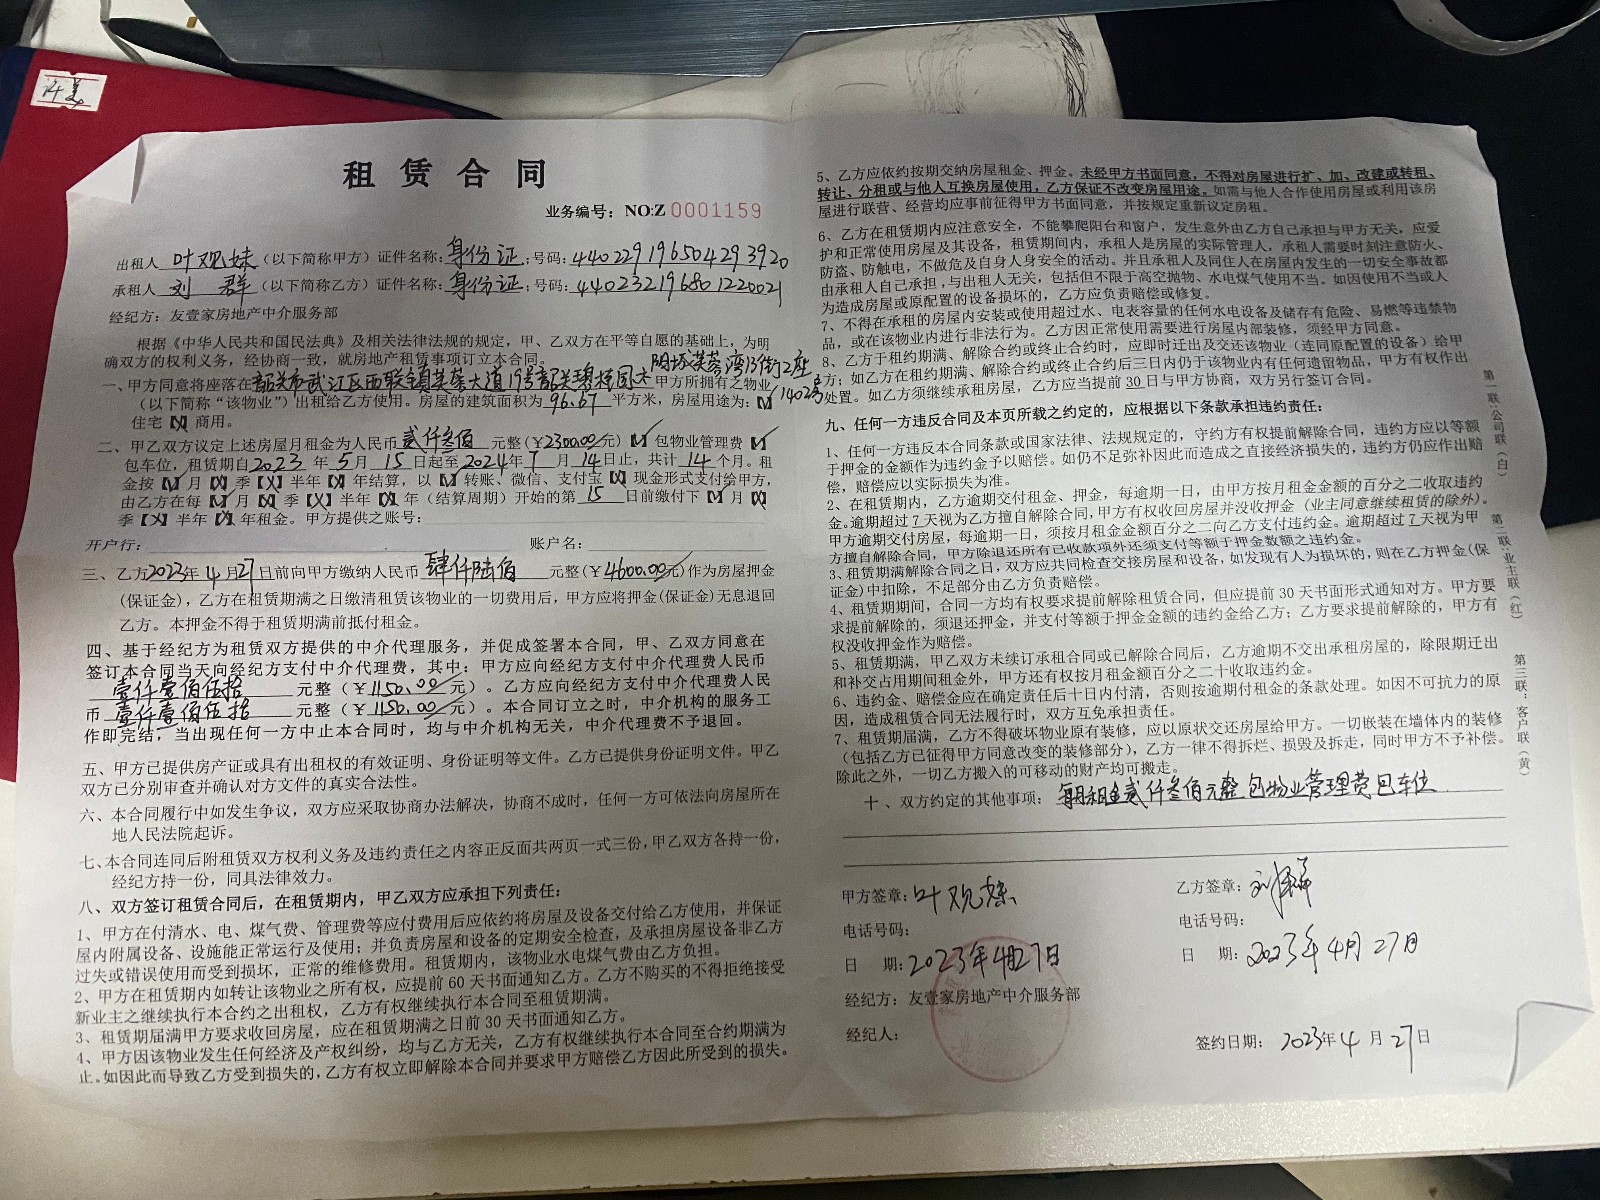 租赁合同
业务编号：NO:Z 0001159
出租人 叶观妹（以下简称甲方）证件名称：身份证；号码：440229196504293920
承租人 刘群（以下简称乙方）证件名称：身份证；号码：440232196801220021
经纪方：友壹家房地产中介服务部
根据《中华人民共和国民法典》及相关法律法规的规定，甲、乙双方在平等自愿的基础上，为明
确双方的权利义务，经协商一致，就房地产租赁事项订立本合同。
一、甲方同意将座落在韶关市武江区西联镇芙蓉大道19号韶关碧桂园 芙蓉湾13街2座1402房 甲方所拥有之物业
（以下简称“该物业”）出租给乙方使用。房屋的建筑面积为 96.67 平方米，房屋用途为：【√】
住宅【×】商用。
二、甲乙双方议定上述房屋月租金为人民币 贰仟叁佰 元整（￥2300.00元）【√】包物业管理费【√】
包车位，租赁期自2023年5月15日起至2024年7月14日止，共计14个月。租
金按【√】月【×】季【×】半年【×】年结算，以【√】转账、微信、支付宝【×】现金形式支付给甲方，
由乙方在每【√】月【×】季【×】半年【×】年（结算周期）开始的第 15 日前缴付下【√】月【×】
季【×】半年【×】年租金。甲方提供之账号：
开户行： 账户名：
三、乙方2023年4月27日前向甲方缴纳人民币 肆仟陆佰 元整（￥4600.00元）作为房屋押金
（保证金），乙方在租赁期满之日缴清租赁该物业的一切费用后，甲方应将押金（保证金）无息退回
乙方。本押金不得于租赁期满前抵付租金。
四、基于经纪方为租赁双方提供的中介代理服务，并促成签署本合同，甲、乙双方同意在
签订本合同当天向经纪方支付中介代理费，其中：甲方应向经纪方支付中介代理费人民币
壹仟壹佰伍拾 元整（￥1150.00元）。乙方应向经纪方支付中介代理费人民
币 壹仟壹佰伍拾 元整（￥1150.00元）。本合同订立之时，中介机构的服务工
作即完结，当出现任何一方中止本合同时，均与中介机构无关，中介代理费不予退回。
五、甲方已提供房产证或具有出租权的有效证明、身份证明等文件。乙方已提供身份证明文件。甲乙
双方已分别审查并确认对方文件的真实合法性。
六、本合同履行中如发生争议，双方应采取协商办法解决，协商不成时，任何一方可依法向房屋所在
地人民法院起诉。
七、本合同连同后附租赁双方权利义务及违约责任之内容正反面共两页一式三份，甲乙双方各持一份，
经纪方持一份，同具法律效力。
八、双方签订租赁合同后，在租赁期内，甲乙双方应承担下列责任：
1、甲方在付清水、电、煤气费、管理费等应付费用后应依约将房屋及设备交付给乙方使用，并保证
屋内附属设备、设施能正常运行及使用；并负责房屋和设备的定期安全检查，及承担房屋设备非乙方
过失或错误使用而受到损坏，正常的维修费用。租赁期内，该物业水电煤气费由乙方负担。
2、甲方在租赁期内如转让该物业之所有权，应提前 60 天书面通知乙方。乙方不购买的不得拒绝接受
新业主之继续执行本合约之出租权，乙方有权继续执行本合同至租赁期满。
3、租赁期届满甲方要求收回房屋，应在租赁期满之日前 30 天书面通知乙方。
4、甲方因该物业发生任何经济及产权纠纷，均与乙方无关，乙方有权继续执行本合同至合约期满为
止。如因此而导致乙方受到损失的，乙方有权立即解除本合同并要求甲方赔偿乙方因此所受到的损失。
5、乙方应依约按期交纳房屋租金、押金。未经甲方书面同意，不得对房屋进行扩、加、改建或转租、
转让、分租或与他人互换房屋使用，乙方保证不改变房屋用途。如需与他人合作使用房屋或利用该房
屋进行联营、经营均应事前征得甲方书面同意，并按规定重新议定房租。
6、乙方在租赁期内应注意安全，不能攀爬阳台和窗户，发生意外由乙方自己承担与甲方无关，应爱
护和正常使用房屋及其设备，租赁期间内，承租人是房屋的实际管理人，承租人需要时刻注意防火、
防盗、防触电，不做危及自身人身安全的活动。并且承租人及同住人在房屋内发生的一切安全事故都
由承租人自己承担，与出租人无关，包括但不限于高空抛物、水电煤气使用不当。如因使用不当或人
为造成房屋或原配置的设备损坏的，乙方应负责赔偿或修复。
7、不得在承租的房屋内安装或使用超过水、电表容量的任何水电设备及储存有危险、易燃等违禁物
品，或在物业内进行非法行为。乙方因正常使用需要进行房屋内部装修，须经甲方同意。
8、乙方于租约期满、解除合约或终止合约时，应即时迁出及交还该物业（连同原配置的设备）给甲
方；如乙方在租约期满、解除合约或终止合约后三日内仍于该物业内有任何遗留物品，甲方有权作出
处置。如乙方须继续承租房屋，乙方应当提前 30 日与甲方协商，双方另行签订合同。
九、任何一方违反合同及本页所载之约定的，应根据以下条款承担违约责任：
1、任何一方违反本合同条款或国家法律、法规规定的，守约方有权提前解除合同，违约方应以等额
于押金的金额作为违约金予以赔偿。如仍不足弥补因此而造成之直接经济损失的，违约方仍应作出赔
偿，赔偿应以实际损失为准。
2、在租赁期内，乙方逾期交付租金、押金，每逾期一日，由甲方按月租金金额的百分之二收取违约
金。逾期超过 7 天视为乙方擅自解除合同，甲方有权收回房屋并没收押金（业主同意继续租赁的除外）。
甲方逾期交付房屋，每逾期一日，须按月租金金额百分之二向乙方支付违约金。逾期超过 7 天视为甲
方擅自解除合同，甲方除退还所有已收款项外还须支付等额于押金数额之违约金。
3、租赁期满解除合同之日，双方应共同检查交接房屋和设备，如发现有人为损坏的，则在乙方押金（保
证金）中扣除，不足部分由乙方负责赔偿。
4、租赁期期间，合同一方均有权要求提前解除租赁合同，但应提前 30 天书面形式通知对方。甲方要
求提前解除的，须退还押金，并支付等额于押金金额的违约金给乙方；乙方要求提前解除的，甲方有
权没收押金作为赔偿。
5、租赁期满，甲乙双方未续订承租合同或已解除合同后，乙方逾期不交出承租房屋的，除限期迁出
和补交占用期间租金外，甲方还有权按月租金额百分之二十收取违约金。
6、违约金、赔偿金应在确定责任后十日内付清，否则按逾期付租金的条款处理。如因不可抗力的原
因，造成租赁合同无法履行时，双方互免承担责任。
7、租赁期届满，乙方不得破坏物业原有装修，应以原状交还房屋给甲方。一切嵌装在墙体内的装修
（包括乙方已征得甲方同意改变的装修部分），乙方一律不得拆烂、损毁及拆走，同时甲方不予补偿。
除此之外，一切乙方搬入的可移动的财产均可搬走。
十、双方约定的其他事项：每月租金贰仟叁佰元整 包物业管理费包车位
甲方签章：叶观妹
乙方签章：刘群
电话号码：
电话号码：
日 期：2023年4月27日
日 期：2023年4月27日
经纪方：友壹家房地产中介服务部
经纪人：
签约日期：2023年4月27日
第一联：公司联（白）
第二联：业主联（红）
第三联：客户联（黄）